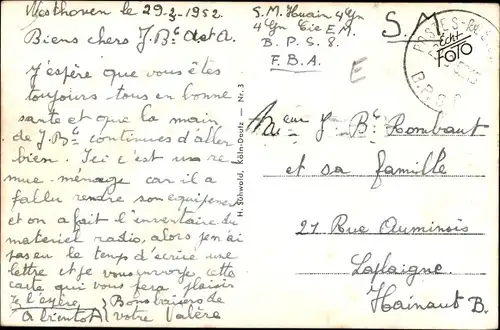 Westhoven le 29-3-1952.
Biens chers J. Bte et A.
J'espère que vous êtes
toujours tous en bonne
santé et que la main
de J. Bte continues d'aller
bien. Ici c'est un re
mue-ménage car il a
fallu rendre son equipement
et on a fait l'inventaire du
materiel radio, alors j'en ai
pas eu le temps d'écrire une
lettre et je vous envoye cette
carte qui vous fera plaisir
je l'espère. Bons baisers de
A bientot votre Valère
H. Sühwold, Köln-Deutz — Nr. 3
S.M. 4 Gn
4 Gn Cie E M.
B. P. S. 8.
F. B. A.
S. M
POSTES
B.P.S.
Echt
FOTO
E
J. Bte Rombaut
et sa famille
27 Rue Auminois
Laplaigne
Hainaut B.